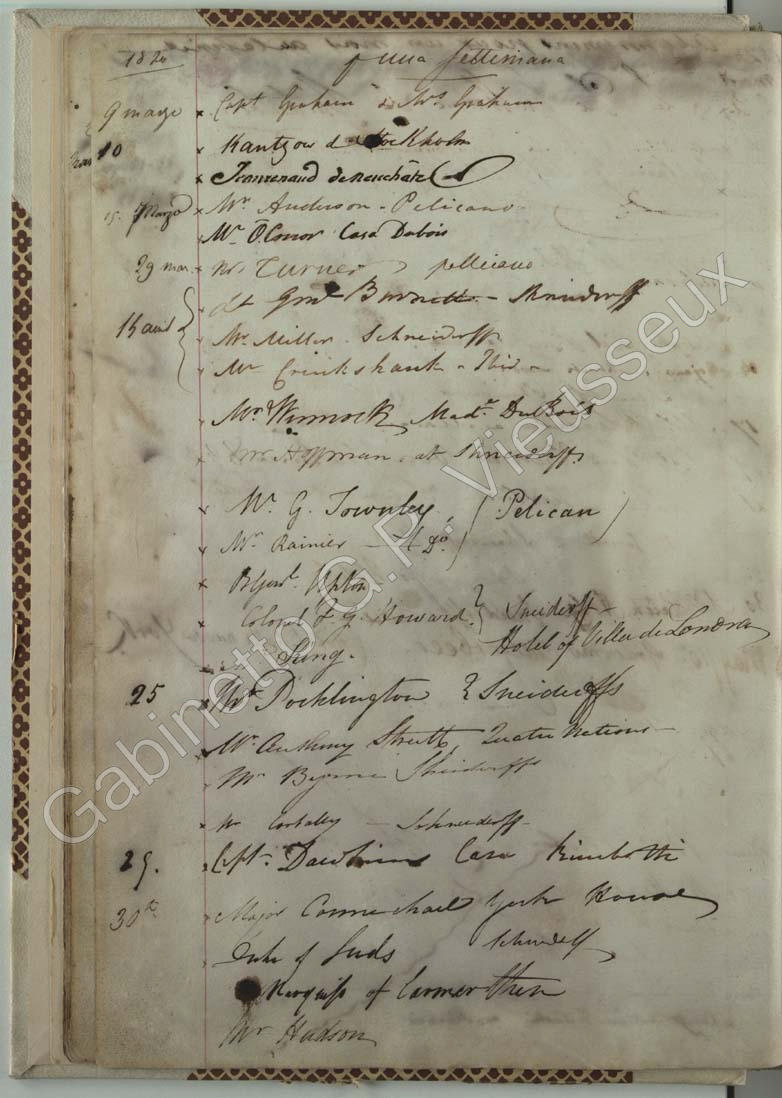 1820 p una settimana
9 marzo x Capt Graham & Mrs Graham
10 x Kantzow de Stockholm
x Jeanrenaud de neuchâtel
15. Marzo x Mr. Anderson - Pelicano
Mr. O'Conor Casa Dubois
29 mar. x Mr Turner pellicano
Gnl Burnett -
Mr. Miller. Schneiderff
x Mr Cruikshank - Ibid -
x Mr. Winnock Made. DuBois
x Mr Hoffman. at Shneiderffs
x Mr. G. Townley (Pelican)
x Mr. Rainier — Do.
x Upton
x Colonel F. G. Howard. } Sneiderff -
Hotel of Villa de Londra
25 x Mr Pocklington } Sneiderffs
Mr Anthony Strutt Quatre Nations -
Mr Byrne Shneiderffs
x Mr — Schneiderff -
29. Capt. Dawkins Casa Rimbotti
30th Major Carmichael York House
Duke of Leeds Schneiderff
Marquiss of Carmerthen
Mr Hudson
Gabinetto G.P. Vieusseux